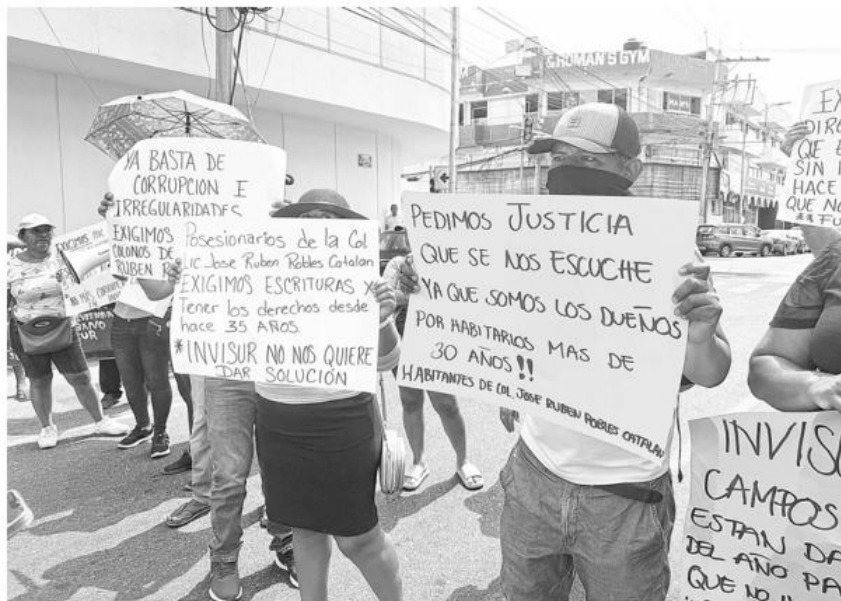 GHUMAN'S GYM
YA BASTA DE
CORRUPCION E
IRREGULARIDADES
EXIGIMOS
COLONOS DE
RUBEN R
Posesionarios de la Col
Lic Jose Ruben Robles Catalan
EXIGIMOS ESCRITURAS X
Tener los derechos desde
hace 35 AÑOS
*INVISUR NO NOS QUIERE
DAR SOLUCIÓN
PEDIMOS JUSTICIA
QUE SE NOS ESCUCHE
YA QUE SOMOS LOS DUEÑOS
POR HABITARLOS MAS DE
30 AÑOS!!
HABITANTES DE COL. JOSE RUBEN ROBLES CATALAN
EX
DIRE
QUE E
SIN I
HACE
QUE NO
INVISU
CAMPOS
ESTAN DA
DEL AÑO PA
QUE NO